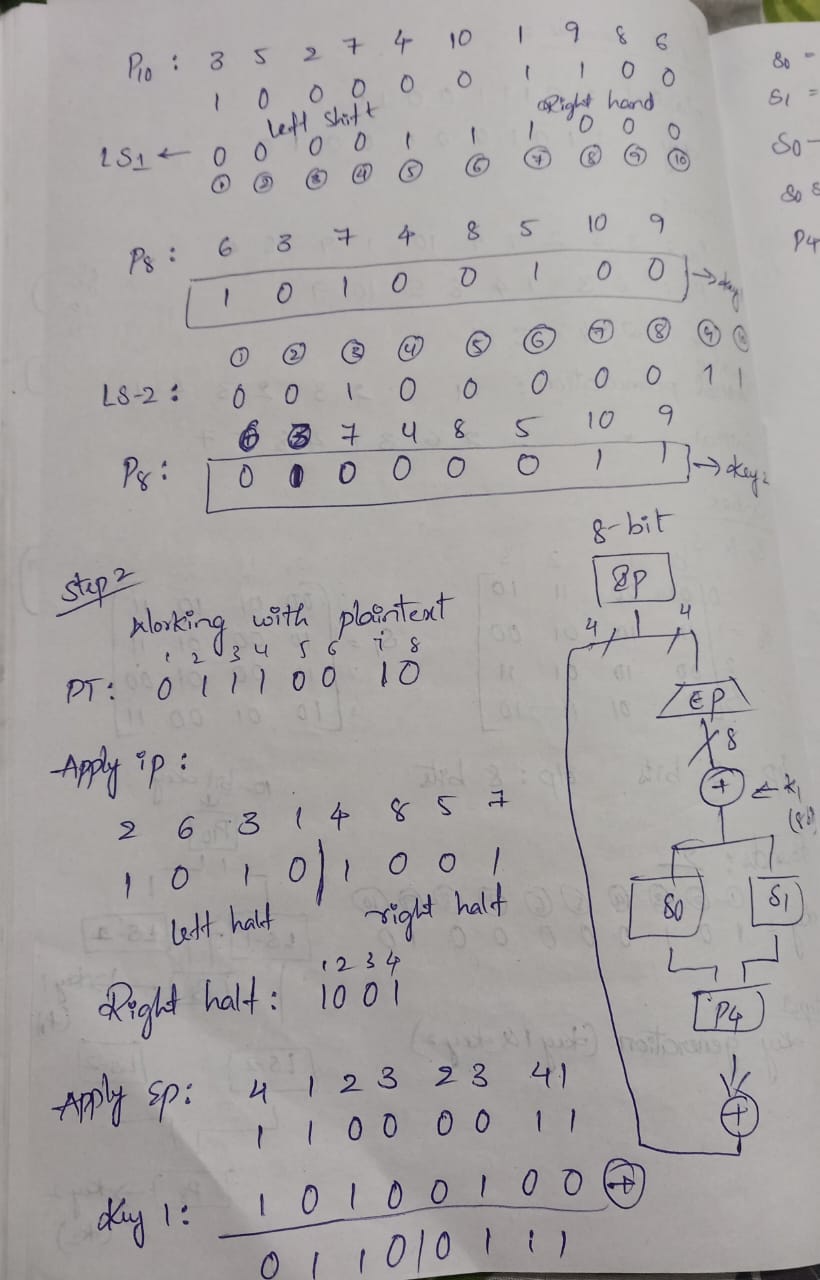 P10 : 3 5 2 7 4 10 1 9 8 6
1 0 0 0 0 0 1 1 0 0
left shift Right hand
LS1 ← 0 0 0 0 1 1 1 0 0 0
① ② ③ ④ ⑤ ⑥ ⑦ ⑧ ⑨ ⑩
P8 : 6 3 7 4 8 5 10 9
1 0 1 0 0 1 0 0 → key
① ② ③ ④ ⑤ ⑥ ⑦ ⑧ ⑨ ⑩
LS-2 : 0 0 1 0 0 0 0 0 1 1
6 3 7 4 8 5 10 9
P8 : 0 1 0 0 0 0 1 1 → key2
Step 2
Working with plaintext
1 2 3 4 5 6 7 8
PT : 0 1 1 1 0 0 1 0
Apply ip :
2 6 3 1 4 8 5 7
1 0 1 0 | 1 0 0 1
left half right half
1 2 3 4
Right half : 1 0 0 1
Apply Ep : 4 1 2 3 2 3 4 1
1 1 0 0 0 0 1 1
Key 1 : 1 0 1 0 0 1 0 0 +
0 1 1 0 | 0 1 1 1
8-bit
IP
4 4
EP
8
+ ← K1
S0 S1
P4
+
S0 -
S1 =
S0 -
P4